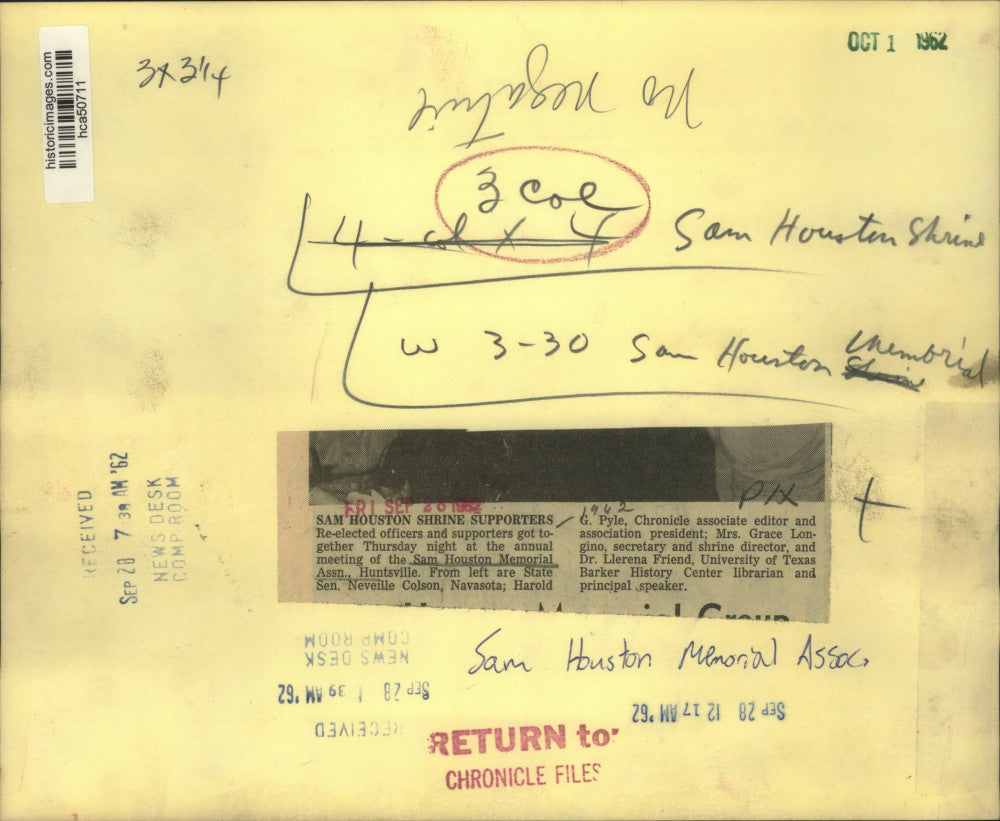 historicimages.com
hca50711
OCT 1 1962
3x3 1/4
No Negative
3 col
4-col x 4
Sam Houston Shrine
W 3-30 Sam Houston Memorial Shrine
PIX
FRI SEP 28 1962
1962
SAM HOUSTON SHRINE SUPPORTERS
Re-elected officers and supporters got to-
gether Thursday night at the annual
meeting of the Sam Houston Memorial
Assn., Huntsville. From left are State
Sen. Neveille Colson, Navasota; Harold
G. Pyle, Chronicle associate editor and
association president; Mrs. Grace Lon-
gino, secretary and shrine director, and
Dr. Llerena Friend, University of Texas
Barker History Center librarian and
principal speaker.
Memorial Group
RECEIVED
SEP 28 7 38 AM '62
NEWS DESK
COMP ROOM
Sam Houston Memorial Assoc.
RECEIVED
SEP 28 1 39 AM '62
NEWS DESK
COMP ROOM
SEP 28 12 17 AM '62
RETURN to
CHRONICLE FILES